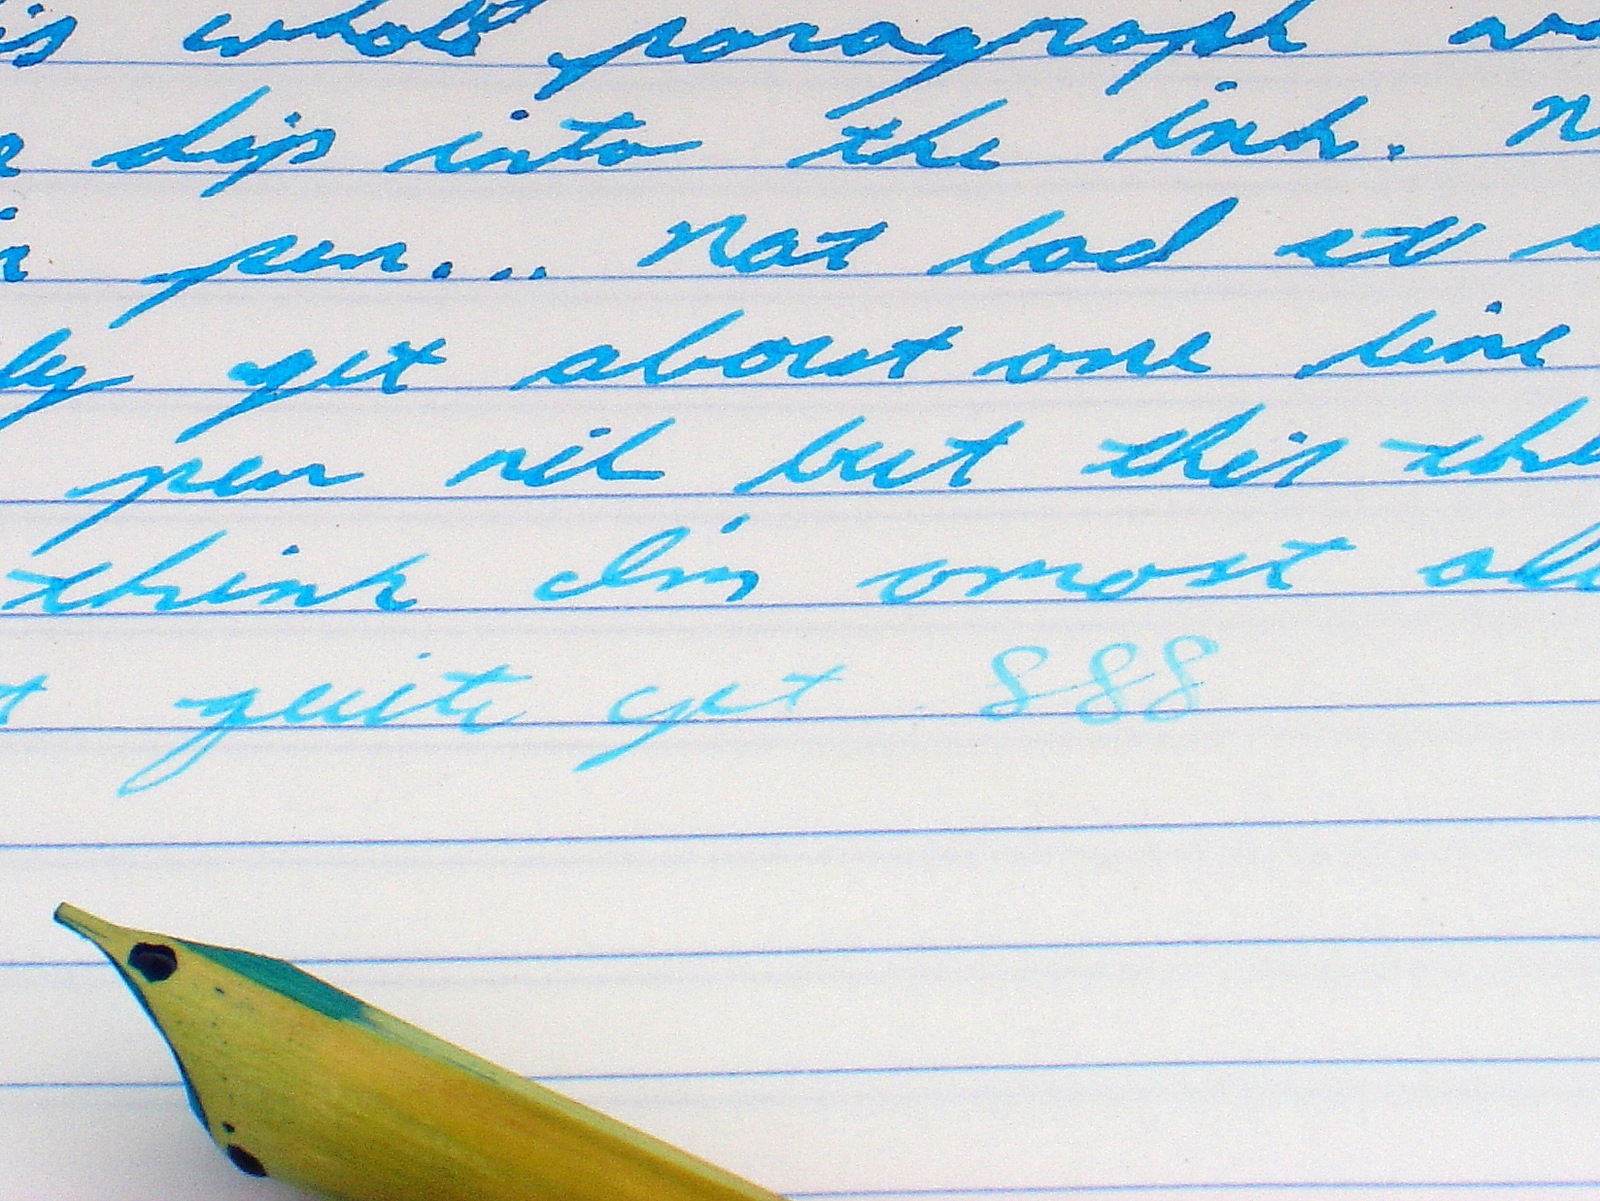 is whole paragraph wa
e dip into the ink. N
n pen... Not bad at a
ly get about one line
pen nib but this thi
think I'm omost all
t quite yet. 888